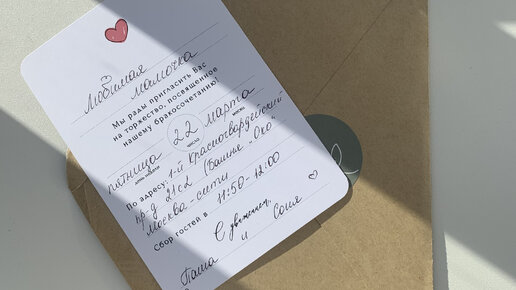 Любимая
мамочка
Мы рады пригласить Вас
на торжество, посвященное
нашему бракосочетанию!
пятница 22 марта
день недели число месяц
По адресу: 1-й Красногвардейский
пр-д 21с2 (башня "Око"
Москва-сити
Сбор гостей в 11:50-12:00
С уважением,
Паша и Соня